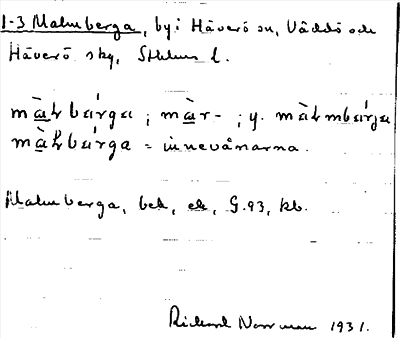 1-3 Malmberga, by i Häverö sn, Väddö och
Häverö skg, Sthlms l.
màɫbárga ; màr- ; y. màɫmbárja
màɫbárga = innevånarna.
Malmberga, bek, ek, G.93, kb.
Rickard Norrman 1931.